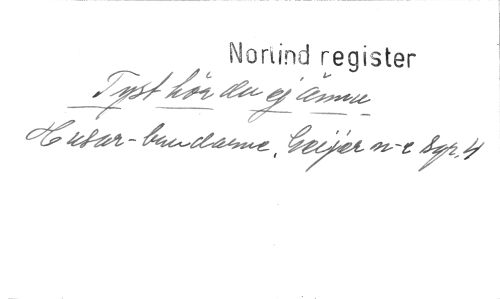 Norlind register
Tyst hör du ej ännu
Husar-brudarne, Geijer n-r Syr. 4